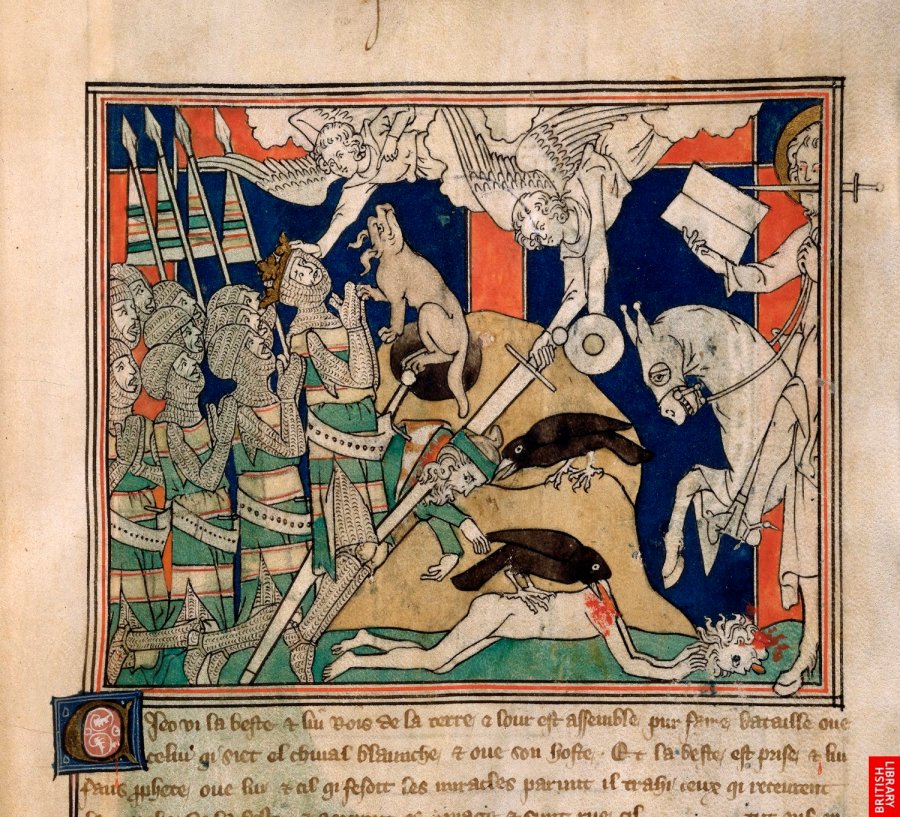 Jeo vi la beste & lui Rois de la terre & lour est assemble pur faire bataille oue
celui qi siet el chiual blaunche, & oue son hoste. Et la beste est prise, & lui
faus pphete oue lui & cil qi fesoit les miracles parunt il trahi ceux qi receurent
BRITISH
LIBRARY